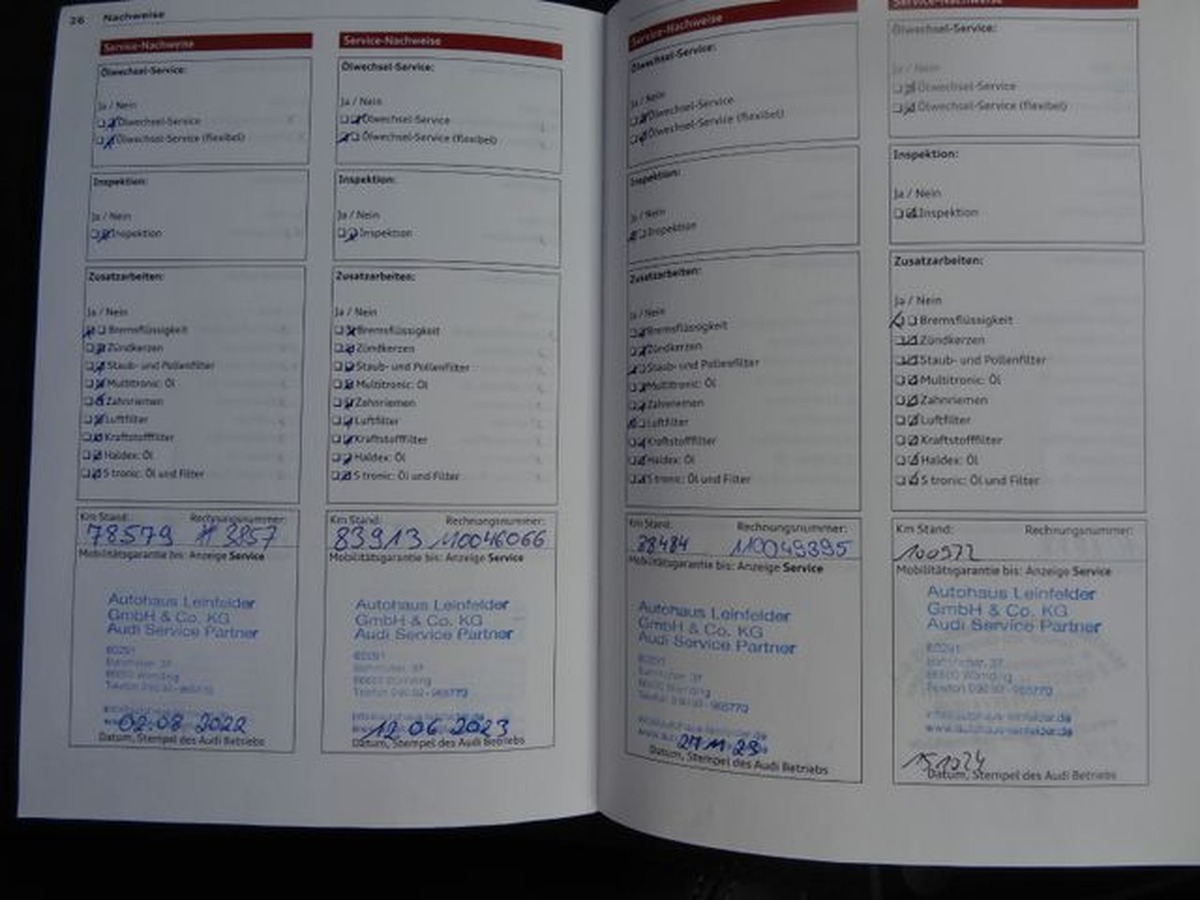 26 Nachweise
Service-Nachweise
Ölwechsel-Service:
Ja / Nein
Ölwechsel-Service
Ölwechsel-Service (flexibel)
Inspektion:
Ja / Nein
Inspektion
Zusatzarbeiten:
Ja / Nein
Bremsflüssigkeit
Zündkerzen
Staub- und Pollenfilter
Multitronic: Öl
Zahnriemen
Luftfilter
Kraftstofffilter
Haldex: Öl
S tronic: Öl und Filter
Km Stand: Rechnungsnummer:
78579 # 3857
Mobilitätsgarantie bis: Anzeige Service
Autohaus Leinfelder
GmbH & Co. KG
Audi Service Partner
02.08 2022
Datum, Stempel des Audi Betriebs
Service-Nachweise
Ölwechsel-Service:
Ja / Nein
Ölwechsel-Service
Ölwechsel-Service (flexibel)
Inspektion:
Ja / Nein
Inspektion
Zusatzarbeiten:
Ja / Nein
Bremsflüssigkeit
Zündkerzen
Staub- und Pollenfilter
Multitronic: Öl
Zahnriemen
Luftfilter
Kraftstofffilter
Haldex: Öl
S tronic: Öl und Filter
Km Stand: Rechnungsnummer:
83913 110046066
Mobilitätsgarantie bis: Anzeige Service
Autohaus Leinfelder
GmbH & Co. KG
Audi Service Partner
12 06 2023
Datum, Stempel des Audi Betriebs
Service-Nachweise
Ölwechsel-Service:
Ja / Nein
Ölwechsel-Service
Ölwechsel-Service (flexibel)
Inspektion:
Ja / Nein
Inspektion
Zusatzarbeiten:
Ja / Nein
Bremsflüssigkeit
Zündkerzen
Staub- und Pollenfilter
Multitronic: Öl
Zahnriemen
Luftfilter
Kraftstofffilter
Haldex: Öl
S tronic: Öl und Filter
Km Stand: Rechnungsnummer:
88484 110049395
Mobilitätsgarantie bis: Anzeige Service
Autohaus Leinfelder
GmbH & Co. KG
Audi Service Partner
Datum, Stempel des Audi Betriebs
Service-Nachweise
Ölwechsel-Service:
Ja / Nein
Ölwechsel-Service
Ölwechsel-Service (flexibel)
Inspektion:
Ja / Nein
Inspektion
Zusatzarbeiten:
Ja / Nein
Bremsflüssigkeit
Zündkerzen
Staub- und Pollenfilter
Multitronic: Öl
Zahnriemen
Luftfilter
Kraftstofffilter
Haldex: Öl
S tronic: Öl und Filter
Km Stand: Rechnungsnummer:
100972
Mobilitätsgarantie bis: Anzeige Service
Autohaus Leinfelder
GmbH & Co. KG
Audi Service Partner
Datum, Stempel des Audi Betriebs